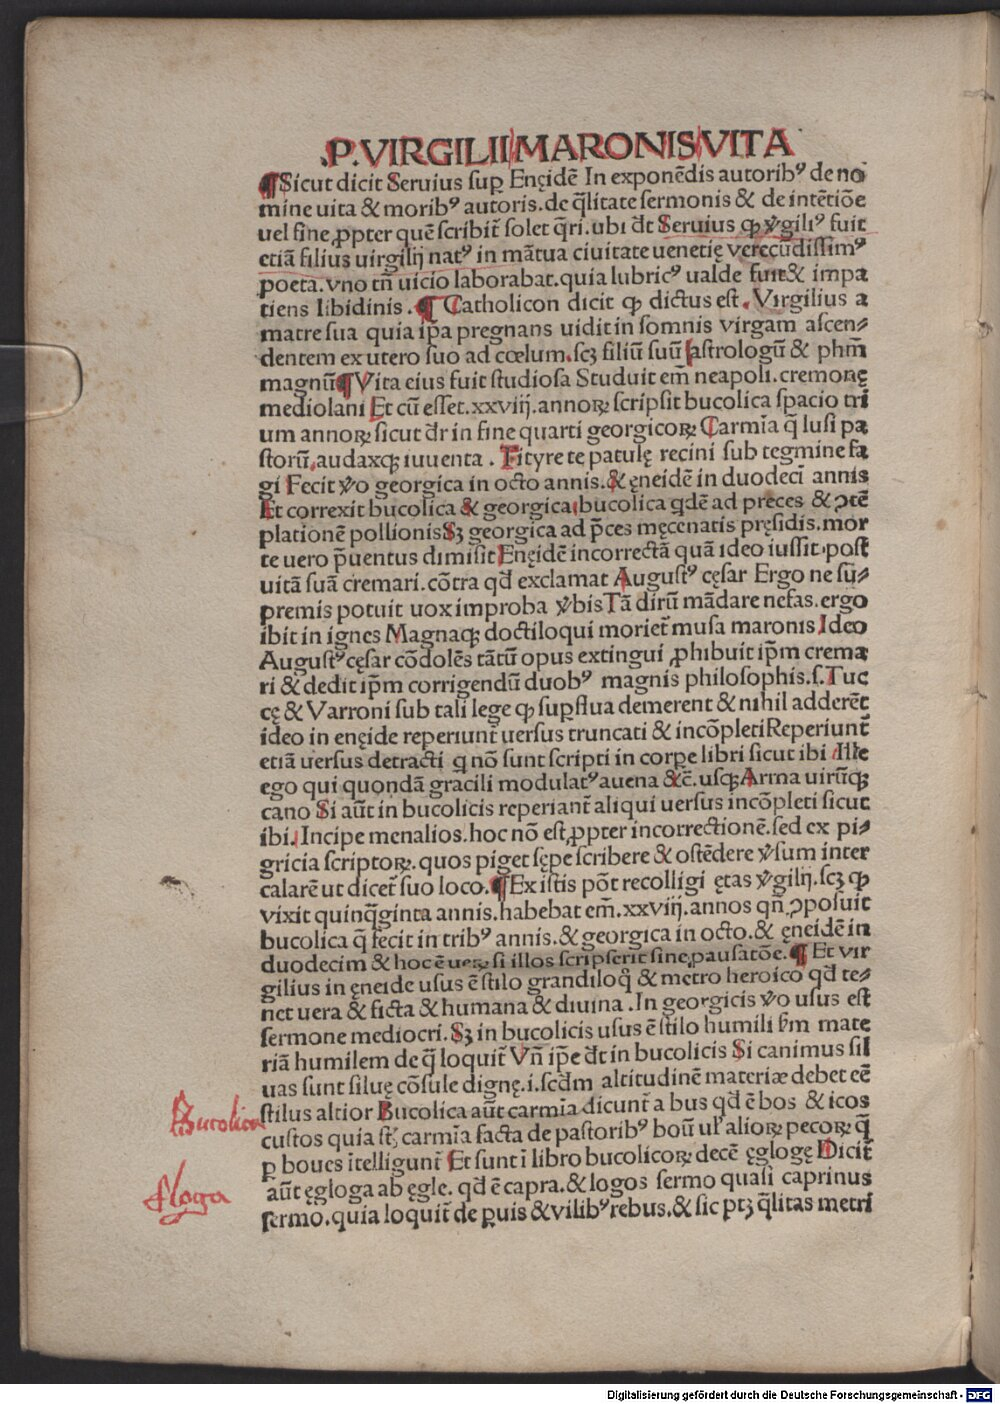 .P.VIRGILII MARONIS VITA
¶ Sicut dicit Seruius suꝑ Enęidē In exponēdis autoribꝰ de no
mine uita & moribꝰ autoris. de q̄litate sermonis & de intētiōe
uel fine ꝓpter quē scribit̄ solet q̄ri. ubi d̄t Seruius ꝙ v̓giliꝰ fuit
etiā filius uirgilij natꝰ in mātua ciuitate uenetię verecūdissimꝰ
poeta. vno tn̄ uicio laborabat. quia lubricꝰ ualde fuit & impa
tiens libidinis. ¶ Catholicon dicit ꝙ dictus est. Virgilius a
matre sua quia ip̄a pregnans uidit in somnis virgam ascen⸗
dentem ex utero suo ad cœlum. scꝫ filiū suū astrologū & phm̄
magnū ¶ Vita eius fuit studiosa Studuit em̄ neapoli. cremonę
mediolani Et cū esset. xxviij. annoꝝ scripsit bucolica spacio tri
um annoꝝ sicut d̄r in fine quarti georgicoꝝ Carmīa q̄ lusi pa
storū. audaxqꝫ iuuenta . Tityre te patulę recini sub tegmine fa
gi Fecit v̓o georgica in octo annis. & ęneidē in duodecī annis
Et correxit bucolica & georgica. bucolica qdē ad preces & ꝯtē
plationē pollionis Sꝫ georgica ad p̄ces męcenatis pręsidis. mor
te uero p̄uentus dimisit Enęidē incorrectā quā ideo iussit. post
uitā suā cremari. cōtra qd̄ exclamat Augustꝰ cęsar Ergo ne su⸗
premis potuit uox improba v̓bis Tā dirū mādare nefas. ergo
ibit in ignes Magnaqꝫ doctiloqui moriet̄ musa maronis Ideo
Augustꝰ cęsar cōdolēs tātū opus extingui ꝓhibuit ip̄m crema
ri & dedit ip̄m corrigendū duobꝰ magnis philosophis. s. Tuc
cę & Varroni sub tali lege ꝙ suꝑflua demerent & nihil adderēt
ideo in enęide reperiunt̄ uersus truncati & incōpleti Reperiunt̄
etiā uersus detracti q nō sunt scripti in corꝑe libri sicut ibi Ille
ego qui quondā gracili modulatꝰ auena &c̄. usqꝫ Arma uirūqꝫ
cano Si aūt in bucolicis reperiant̄ aliqui uersus incōpleti sicut
ibi. Incipe menalios. hoc nō est ꝓpter incorrectionē. sed ex pi⸗
gricia scriptoꝝ. quos piget sępe scribere & ostēdere v̓sum inter
calarē ut dicet̄ suo loco. ¶ Ex istis pōt recolligi ętas v̓gilij. scꝫ ꝙ
vixit quinq̄ginta annis. habebat em̄. xxviij. annos qn̄ ꝯposuit
bucolica q̄ fecit in tribꝰ annis. & georgica in octo. & ęneidē in
duodecim & hoc ē ueꝝ si illos scripserit sine pausatōe. ¶ Et vir
gilius in ęneide usus ē stilo grandiloq̄ & metro heroico qd̄ te⸗
net uera & ficta & humana & diuina . In georgicis v̓o usus est
sermone mediocri. Sꝫ in bucolicis usus ē stilo humili s̄m mate
riā humilem de q̄ loquit̄ Vn̄ ip̄e d̄t in bucolicis Si canimus sil
uas sunt siluę cōsule dignę. i. scd̄m altitudinē materiæ debet eē
stilus altior Bucolica aūt carmīa dicunt̄ a bus qd̄ ē bos & icos
custos quia st̄ carmīa facta de pastoribꝰ boū ul̓ alioꝝ pecoꝝ q̄
ꝑ boues ītelligunt̄ Et sunt ī libro bucolicoꝝ decē ęglogę Dicit̄
aūt ęgloga ab ęgle. qd̄ ē capra. & logos sermo quasi caprinus
sermo. quia loquit̄ de ꝑuis & vilibꝰ rebus. & sic ptꝫ q̄litas metri
Bucolica
Digitalisierung gefördert durch die Deutsche Forschungsgemeinschaft - DFG